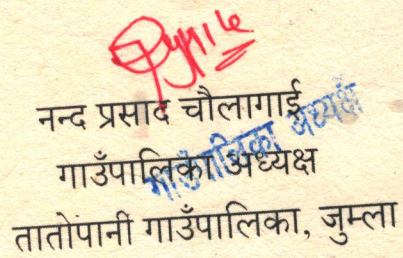 नन्द प्रसाद चौलागाई
गाउँपालिका अध्यक्ष
गाउँपालिका अध्यक्ष
तातोपानी गाउँपालिका, जुम्ला